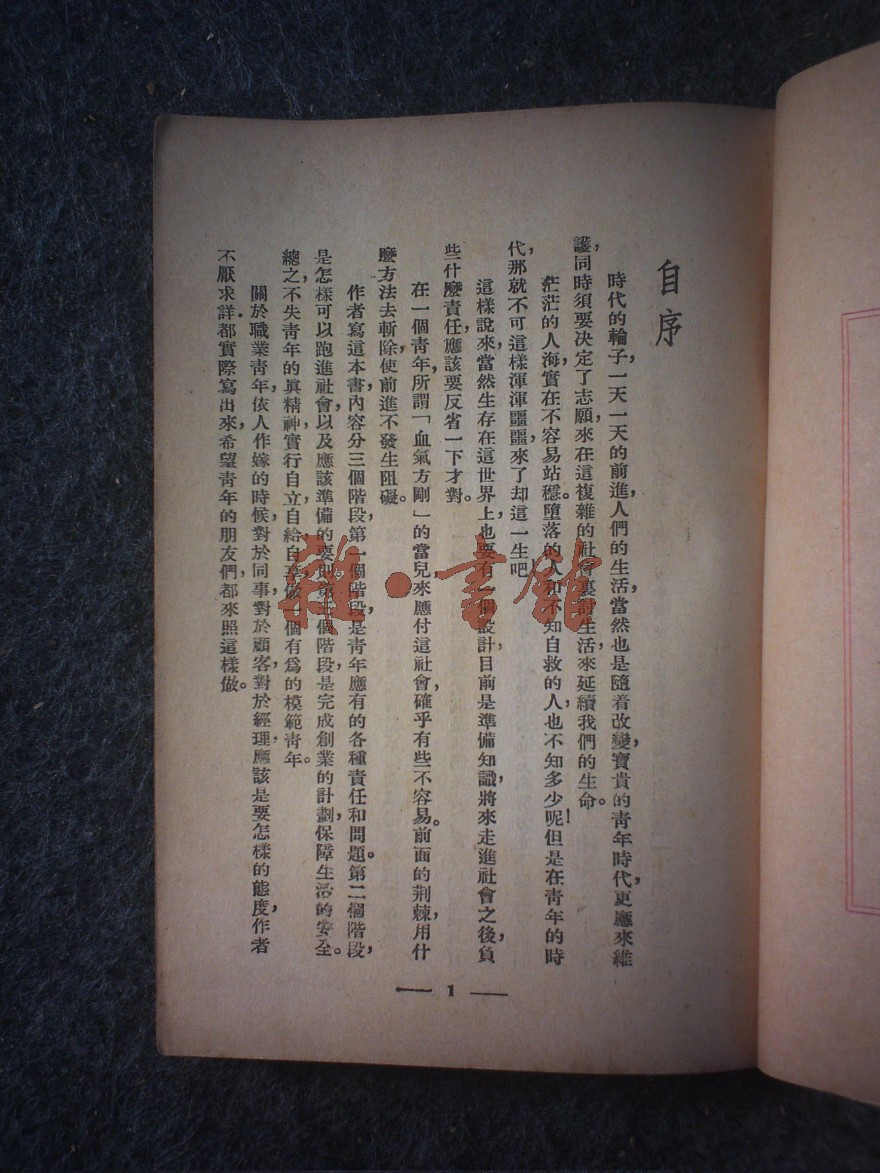 自序
時代的輪子，一天一天的前進，人們的生活，當然也是隨着改變，寶貴的青年時代，更應來維
護，同時須要決定了志願，來在這複雜的社會裏討生活，來延續我們的生命。
茫茫的人海，實在不容易站穩。墮落的人和不知自救的人，也不知多少呢！但是在青年的時
代，那就不可這樣渾渾噩噩來了却這一生吧，
這樣說來，當然生存在這世界上，也要有一個設計，目前是準備知識，將來走進社會之後，負
些什麼責任，應該要反省一下才對。
在一個青年，所謂「血氣方剛」的當兒，來應付這社會，確乎有些不容易。前面的荆棘，用什
麼方法去斬除，使前進不發生阻礙。
作者寫這本書，內容分三個階段，第一個階段是青年應有的各種責任和問題。第二個階段，
是怎樣可以跑進社會，以及應該準備的要則。第三個階段，是完成創業的計劃，保障生活的安全。
總之，不失青年的眞精神，實行自立自給自享，做一個有爲的模範青年。
關於職業青年，依人作嫁的時候，對於同事，對於顧客，對於經理，應該是要怎樣的態度，作者
不厭求詳，都實際寫出來，希望青年的朋友們，都來照這樣做。
— 1 —
雜·書館